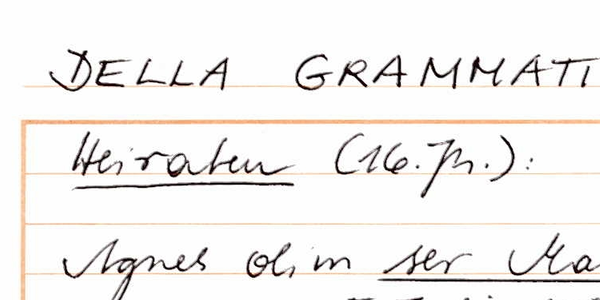 DELLA GRAMMATI
Heiraten (16. Jh.):
Agnes olim ser Ma